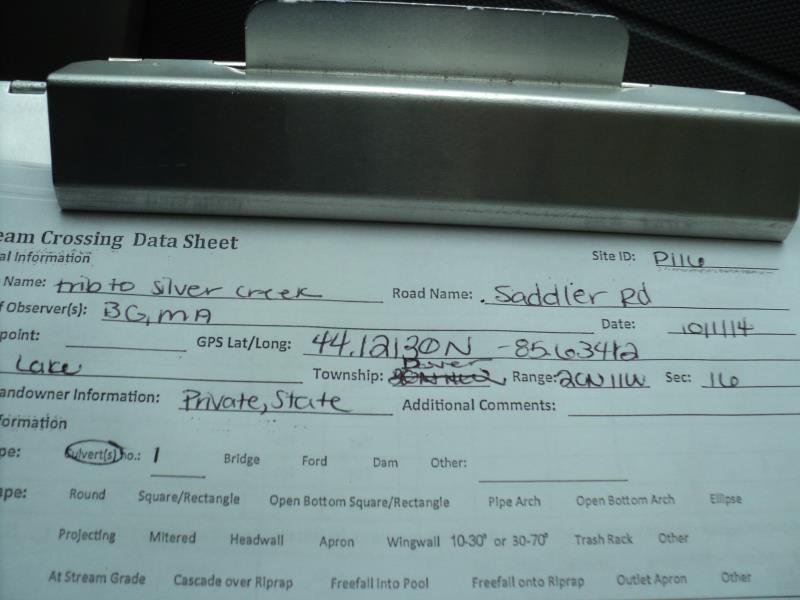 eam Crossing Data Sheet
al Information Site ID: P116
Name: trib to silver creek Road Name: Saddler Rd
f Observer(s): BG, MA Date: 10/1/14
point: GPS Lat/Long: 44.12130N -85.63412
Lake Township: Dover Range: 20N 11W Sec: 16
andowner Information: Private, State Additional Comments:
formation
pe: Culvert(s) no.: 1 Bridge Ford Dam Other:
ape: Round Square/Rectangle Open Bottom Square/Rectangle Pipe Arch Open Bottom Arch Ellipse
Projecting Mitered Headwall Apron Wingwall 10-30° or 30-70° Trash Rack Other
At Stream Grade Cascade over Riprap Freefall Into Pool Freefall onto Riprap Outlet Apron Other